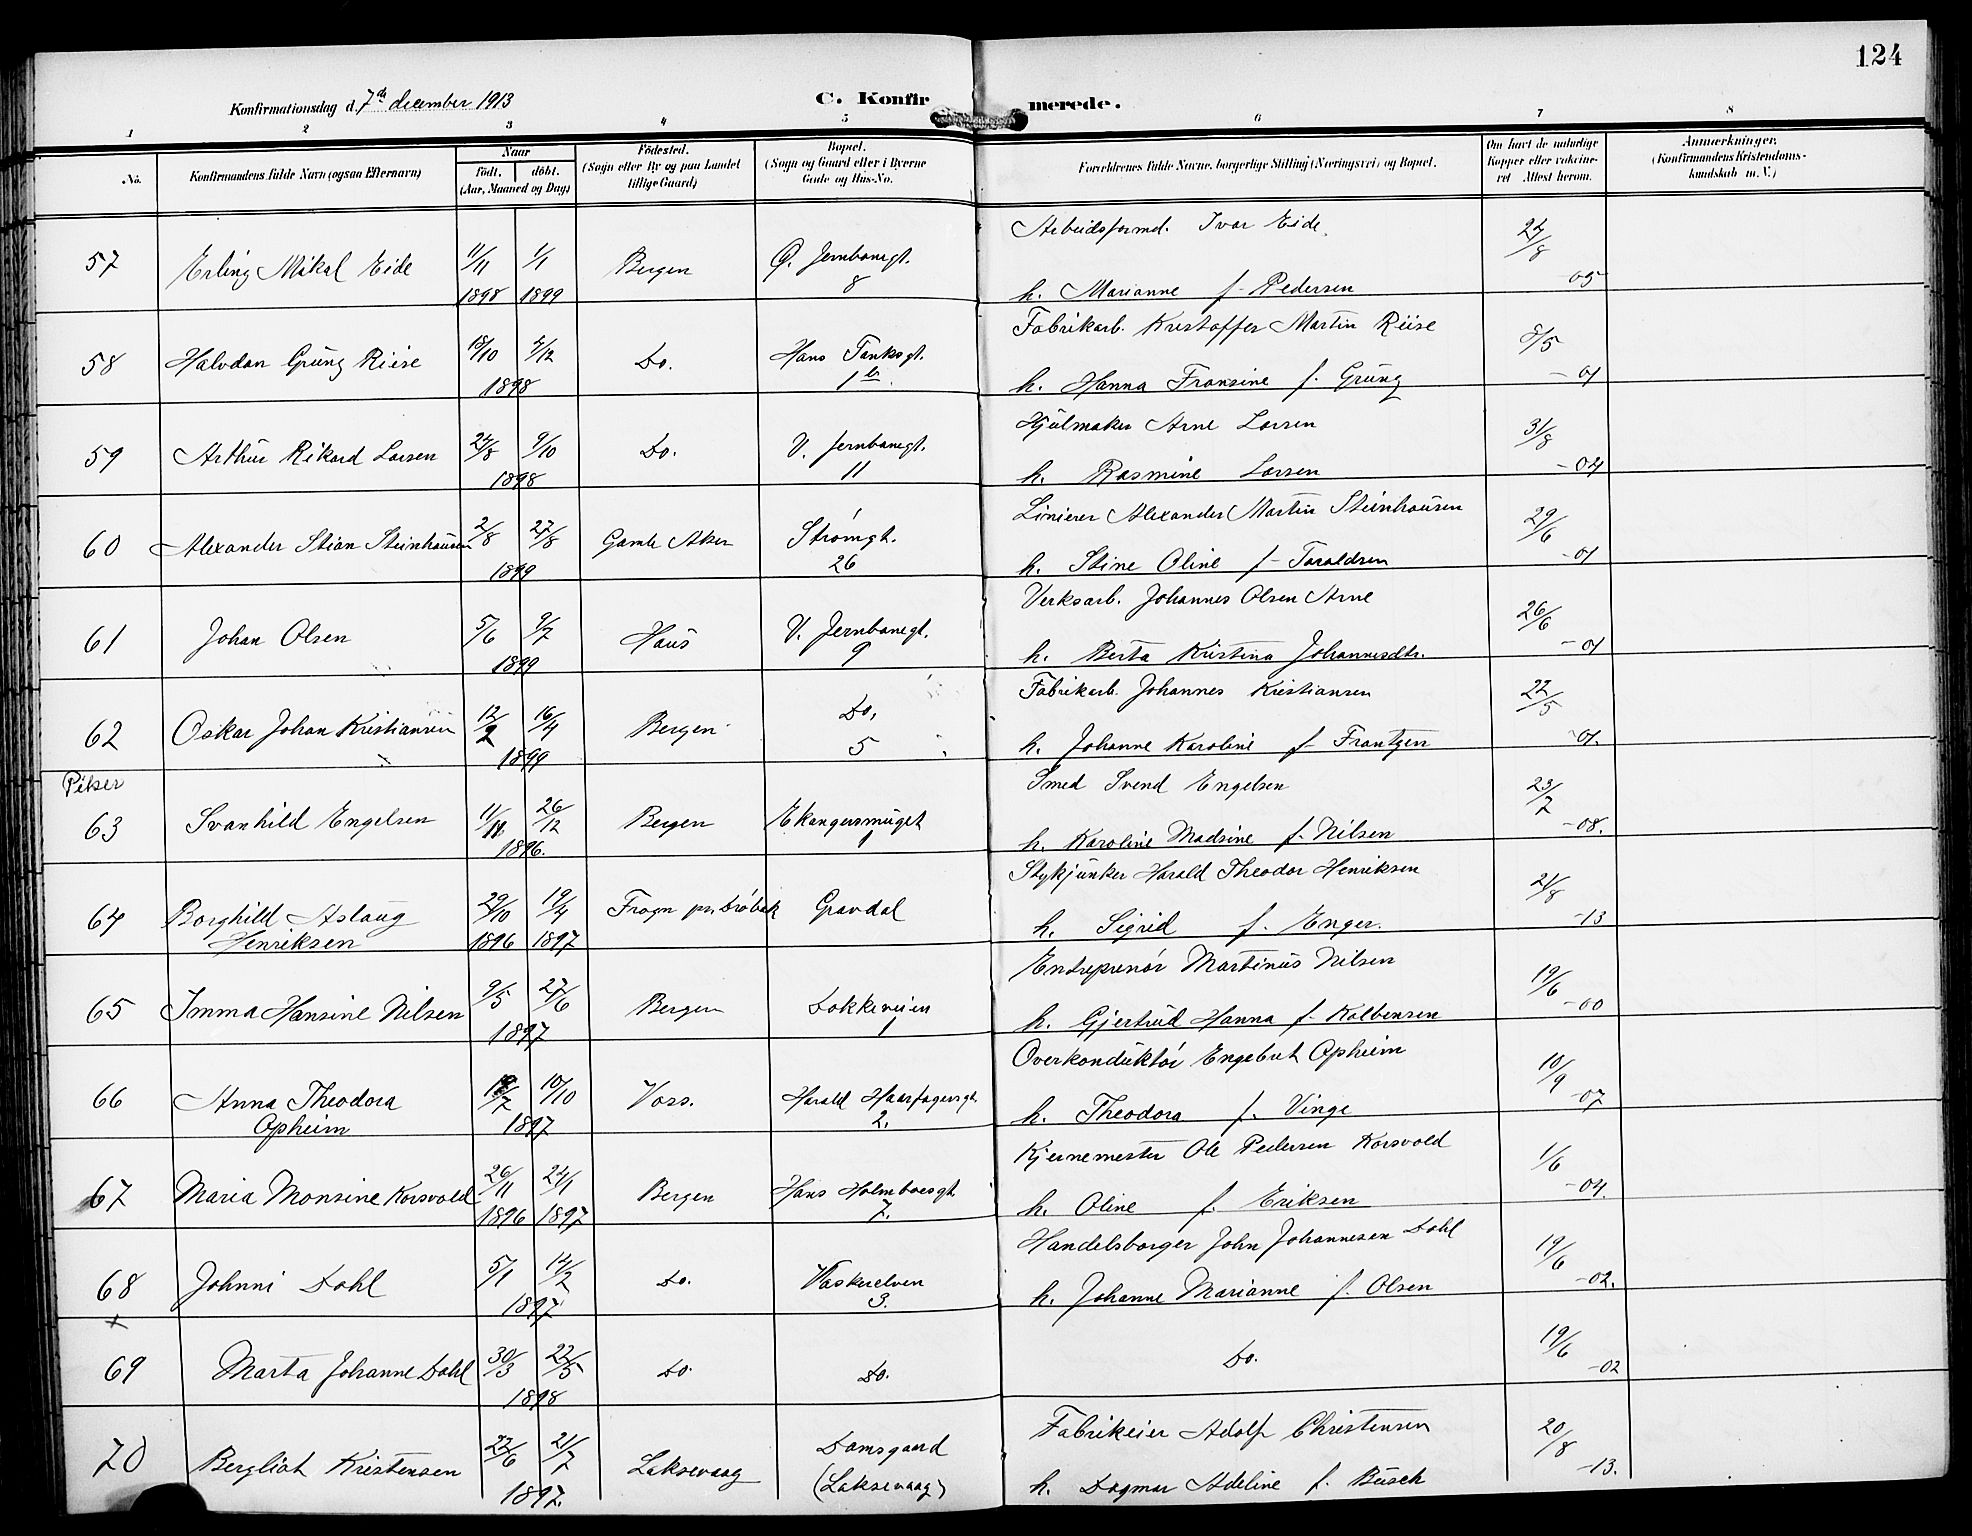 124
Konfirmationsdag d. 7de december 1913 C. Konfirmerede.
1 2 3 4 5 6 7 8
No. Konfirmandens fulde Navn (ogsaa Efternavn) Naar födt. döbt. (Aar, Maaned og Dag) Födested. (Sogn eller By og paa Landet tillige Gaard) Bopæl. (Sogn og Gaard eller i Byerne Gade og Hus-No. Forældrenes fulde Navne, borgerlige Stilling (Næringsvei) og Bopæl. Om havt de naturlige Kopper eller vakcineret Attest herom. Anmerkninger. (Konfirmandens Kristendomskundskab m. V.)
57 Erling Mikal Eide 11/11 1898 1/1 1899 Bergen Ø. Jernbanegt. 8 Arbeidsformd. Ivar Eide 24/8 -05
h. Marianne f. Pedersen
58 Halvdan Grung Riise 18/10 4/12 1898 Do. Hans Tanksgt. 1 Fabrikarb. Kristoffer Martin Riise 8/5 -01
h. Hanna Fransine f. Grung
59 Arthur Rikard Larsen 24/8 9/10 1898 Do. V. Jernbanegt. 11 Hjulmaker Arne Larsen 31/8 -04
h. Rasmine Larsen
60 Alexander Stian Steinhausen 2/8 27/8 1899 Gamle Aker Strømgt. 26 Linierer Alexander Martin Steinhausen 29/6 -01
h. Stine Oline f. Taraldsen
61 Johan Olsen 5/6 9/7 1899 Haus V. Jernbanegt. 9 Verksarb. Johannes Olsen Arne 26/6 -01
h. Berta Kristina Johannesdtr.
62 Oskar Johan Kristiansen 12/2 16/4 1899 Bergen Do. 5 Fabrikarb. Johannes Kristiansen 22/5 -01.
h. Johanne Karoline f. Frantzen
Piker
63 Svanhild Engelsen 11/11 26/12 1896. Bergen Ekangersmuget 1 Smed Svend Engelsen 23/7 -08.
h. Karoline Madsine f. Nilsen
64 Borghild Aslaug Henriksen 29/10 1896 19/4 1897 Frogn pr. Drøbak Gravdal Stykjunker Harald Theodor Henriksen 21/8 -13
h. Sigrid f. Enger.
65 Imma Hansine Nilsen 9/5 27/6 1897 Bergen Dokkeveien 1 Entreprenør Martinus Nilsen 19/6 -00
h. Gjertrud Hanna f. Kolbensen
66 Anna Theodora Opheim /7 10/10 1897 Voss. Harald Haarfagersgt. 2. Overkonduktør Engebret Opheim 10/9 -07
h. Theodora f. Vinge
67 Maria Monsine Korsvold 26/11 1896 24/1 1897 Bergen Hans Holmboesgt. 7. Kjernemester Ole Pedersen Korsvold 1/6 -04.
h. Oline f. Eriksen
68 Johnni Dahl 5/1 14/2 1897 Do. Vaskerelven 3. Handelsborger John Johannesen Dahl 19/6 -02.
h. Johanne Marianne f. Olsen
x
69 Marta Johanne Dahl 30/3 22/5 1898 Do. Do. Do. 19/6 -02
70 Bergliot Kristensen 22/6 21/7 1897. Laksevaag Damsgaard (Laksevaag) Fabrikeier Adolf Christensen 20/8 -13.
h. Dagmar Adeline f. Busch